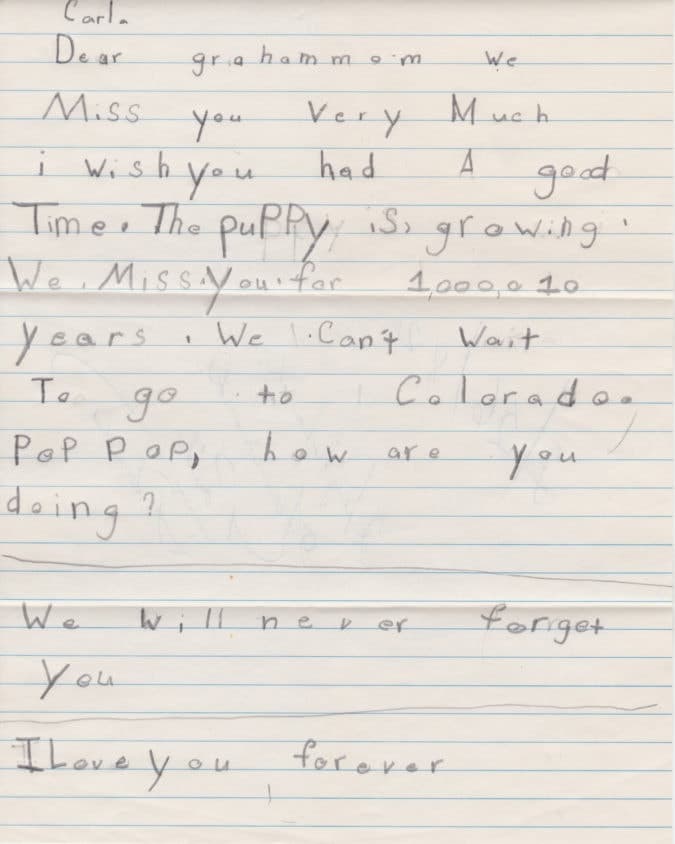 Carl.
Dear grahammom We
Miss you Very Much
i wish you had A good
Time. The puPPy is, growing.
We. Miss.you.for 1,000,010
years. We Can't Wait
To go to Colorado.
PoP PoP, how are you
doing?
We will never forget
you
I Love you forever